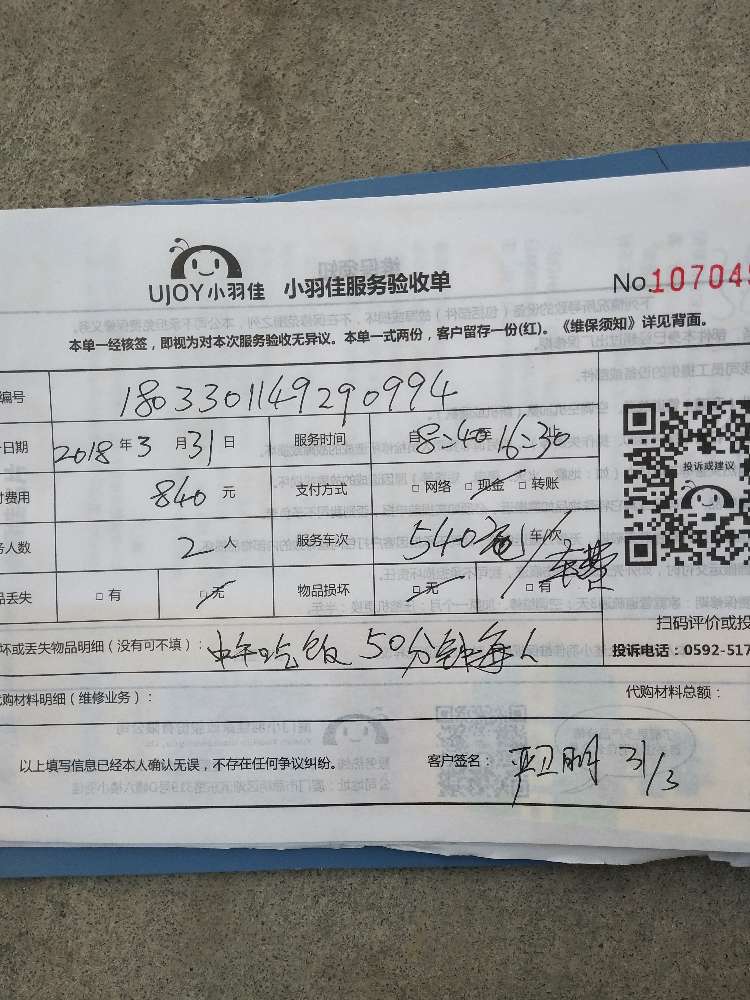 UJOY小羽佳 小羽佳服务验收单 No.107049
本单一经核签，即视为对本次服务验收无异议。本单一式两份，客户留存一份(红)。《维保须知》详见背面。
编号 1803301149290994
日期 2018年3月31日 服务时间 自8:40至16:30止
费用 840元 支付方式 □网络 □现金 □转账
人数 2人 服务车次 540 车/次
车费
品丢失 □有 □无 物品损坏 □无 □有
坏或丢失物品明细（没有可不填）： 中午吃饭50分钟每人
代购材料明细（维修业务）： 代购材料总额：
以上填写信息已经本人确认无误，不存在任何争议纠纷。 客户签名： 严卫明 31/3
投诉或建议
扫码评价或投
投诉电话：0592-517